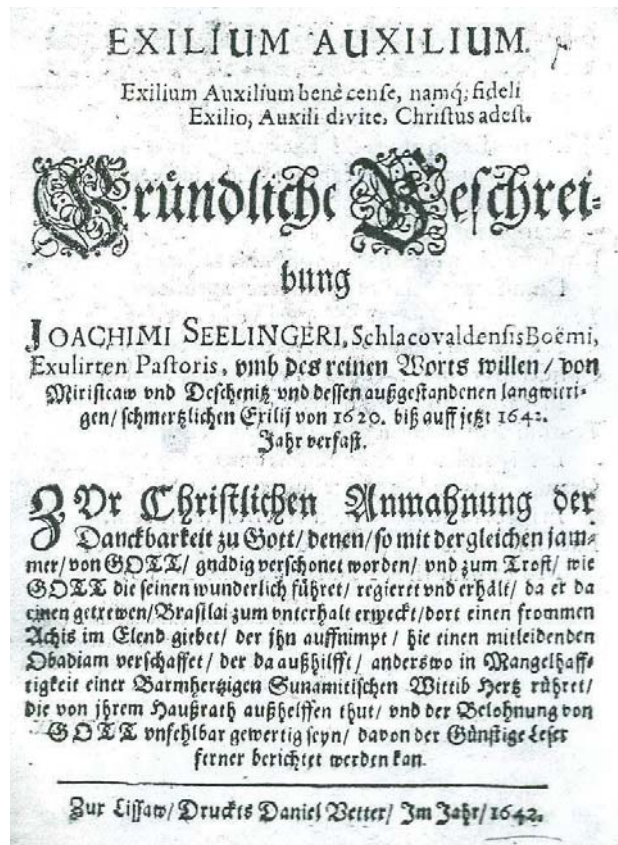 EXILIUM AUXILIUM.
Exilium Auxilium benè cense, namq́; fideli
Exilio, Auxili divite, Christus adest.
Gründliche Beschrei-
bung
JOACHIMI SEELINGERI, Schlacovaldensis Boëmi,
Exulirten Pastoris, vmb des reinen Worts willen / von
Miristcaw vnd Deschenitz vnd dessen außgestandenen langwiri-
gen / schmertzlichen Exilij von 1620. biß auff jetzt 1642.
Jahr verfast.
ZVr Christlichen Anmahnung der
Danckbarkeit zu Gott / denen / so mit dergleichen jam-
mer / von GOTT / gnädig verschonet worden / vnd zum Trost / wie
GOTT die seinen wunderlich führet / regieret vnd erhält / da er da
einen getrewen / Brasilai zum vnterhalt erweckt / dort einen frommen
Achis im Elend giebet / der jhn auffnimpt / hie einen mitleidenden
Obadiam verschaffet / der da außhilfft / anderswo in Mangelhaff-
tigkeit einer Barmhertzigen Sunamitischen Wittib Hertz rühret /
die von jhrem Haußrath außhelffen thut / vnd der Belohnung von
GOTT vnfehlbar gewertig seyn / davon der Günstige Leser
ferner berichtet werden kan.
Zur Lissaw / Druckts Daniel Vetter / Im Jahr / 1642.